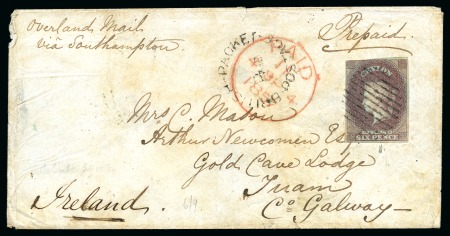 Overland Mail
via Southampton
Prepaid.
PAID
CEYLON
POSTAGE
SIX PENCE
Mrs C. Mahon
Arthur Newcomen Esq
Gold Cave Lodge
Tuam
Co Galway
Ireland.